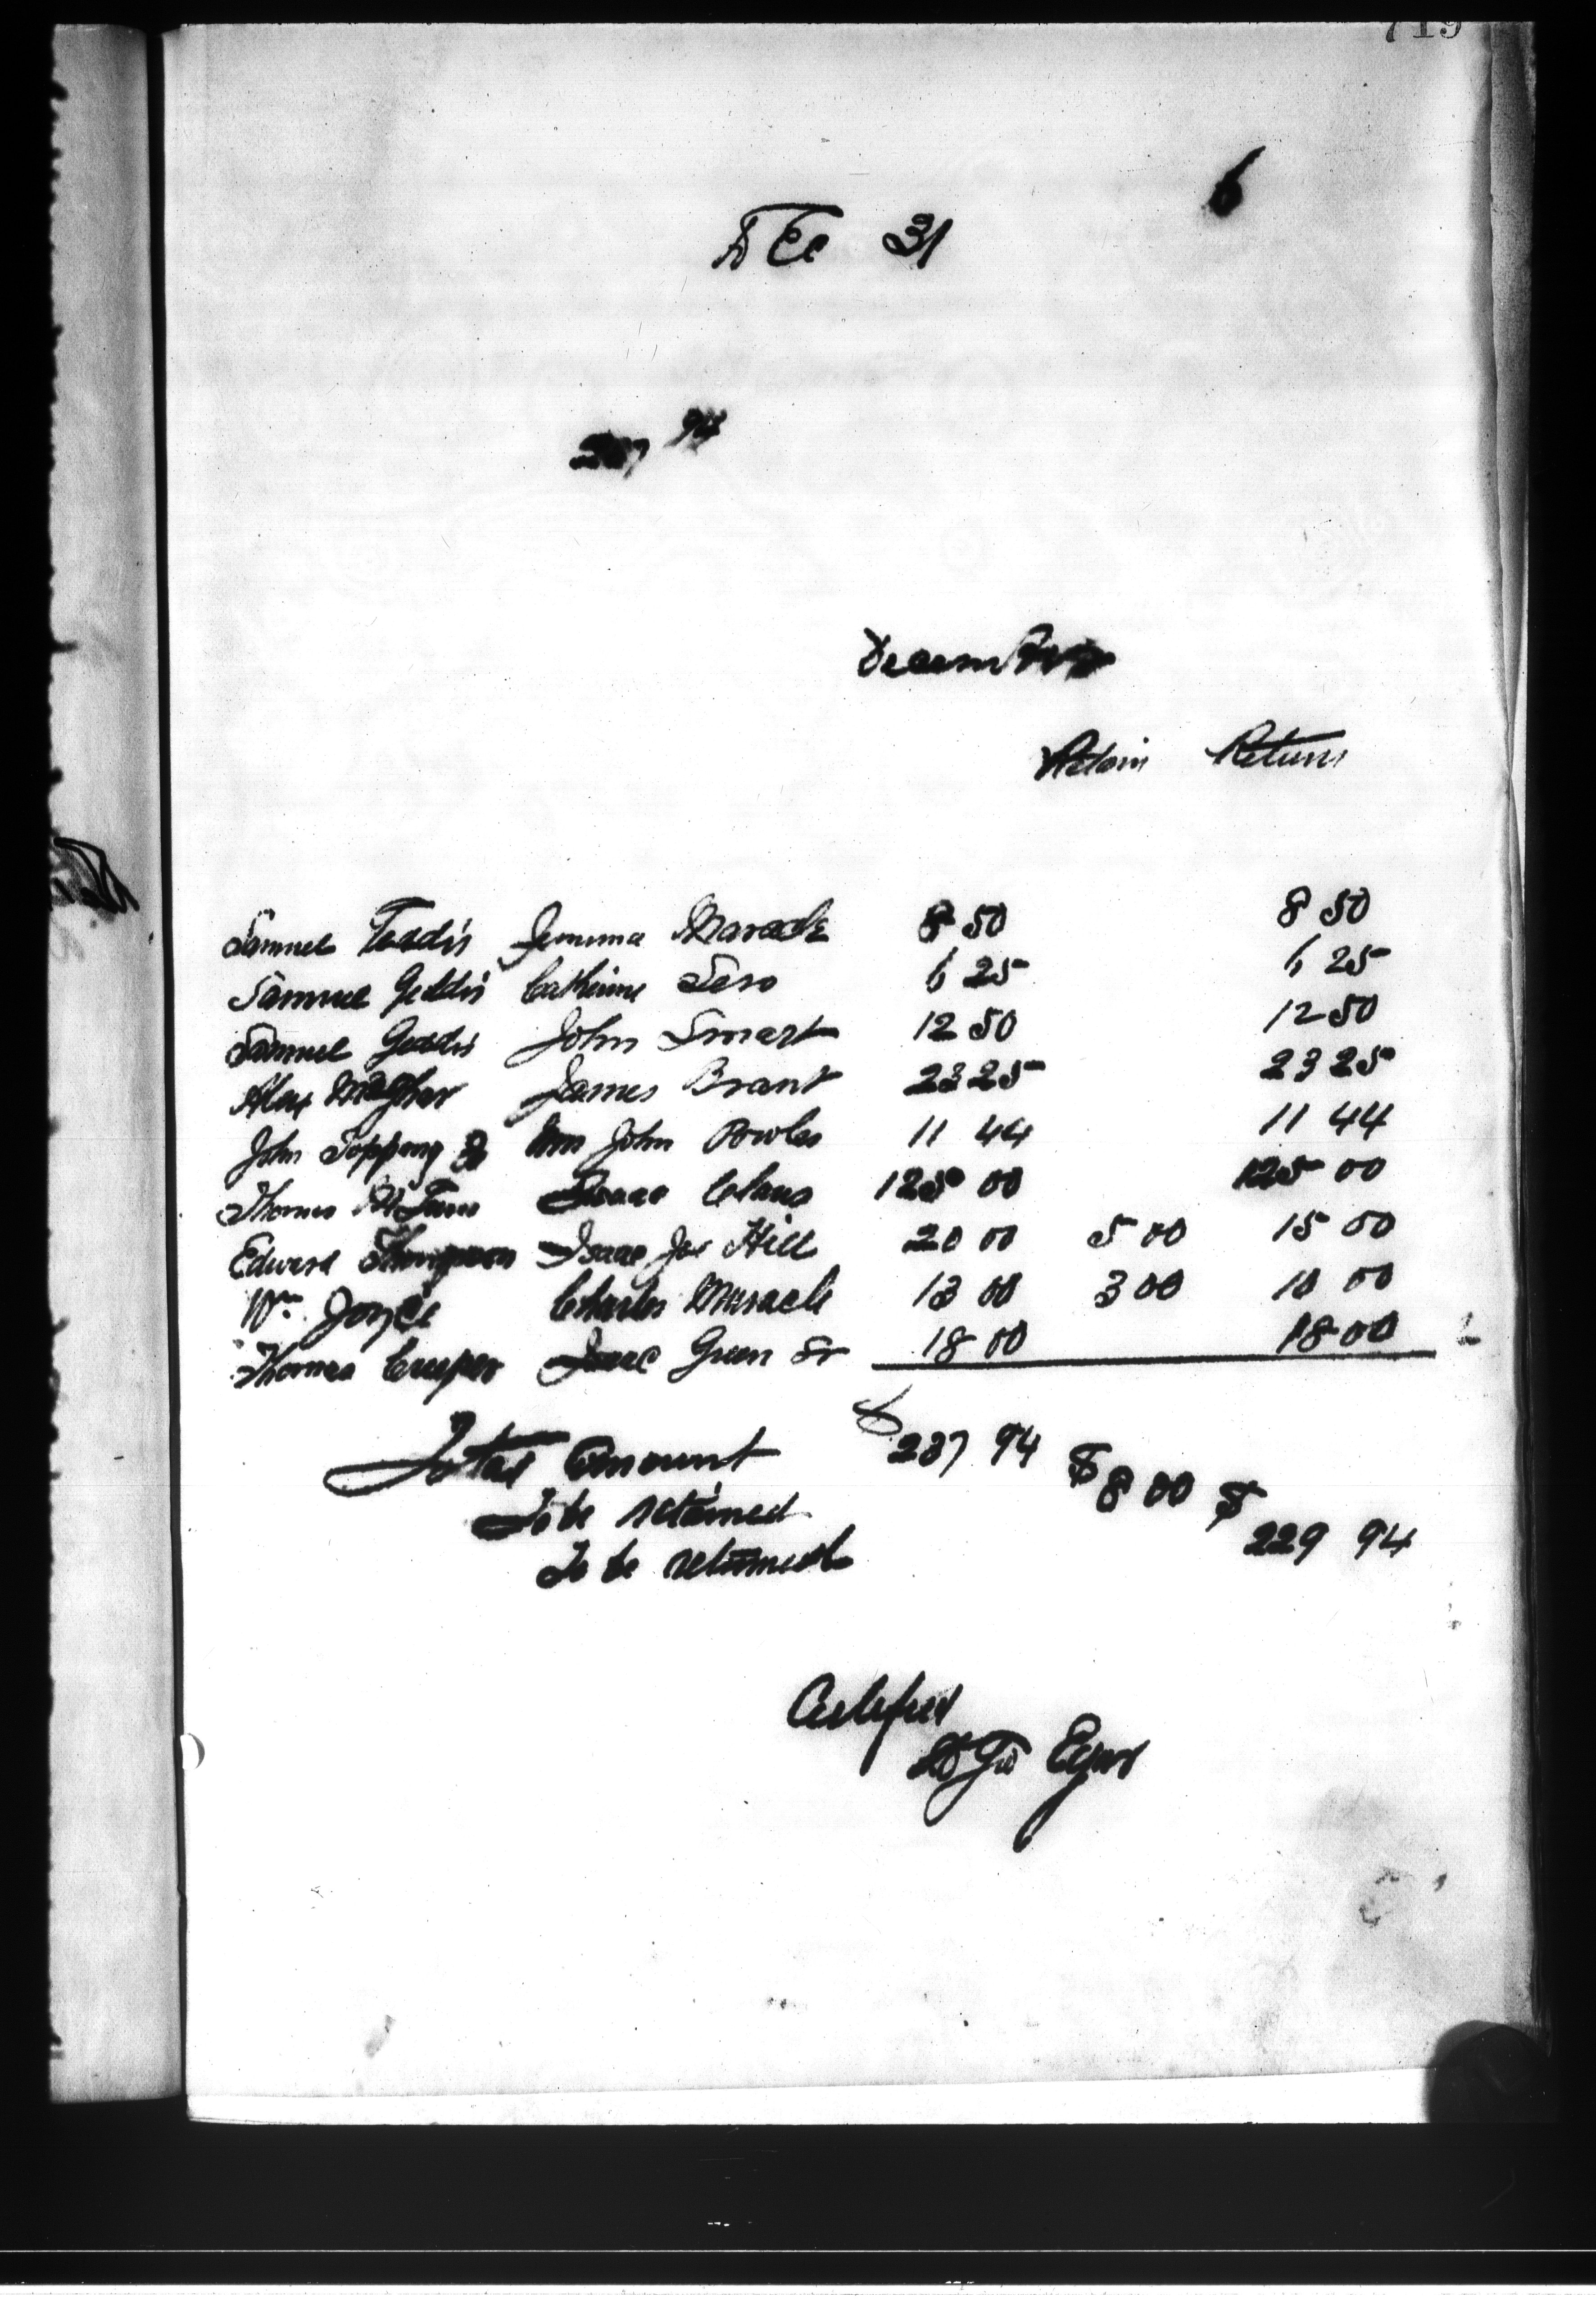 719
6
DEc 31
237 94
December
Retain Return
Samuel Geddis Jemima Maracle 8 50 8 50
Samuel Geddis Catherine Sero 6 25 6 25
Samuel Geddis John Smart 12 50 12 50
Alex James Brant 23 25 23 25
John Topping John Powles 11 44 11 44
Thomas Isaac Claus 125 00 125 00
Edward Thompson Isaac Joe Hill 20 00 5 00 15 00
Wm Joyce Charles Maracle 13 00 3 00 10 00
Thomas Isaac Green Sr 18 00 18 00
Total Amount $ 237 94 $ 8 00 $ 229 94
To be retained
To be returned
Certified